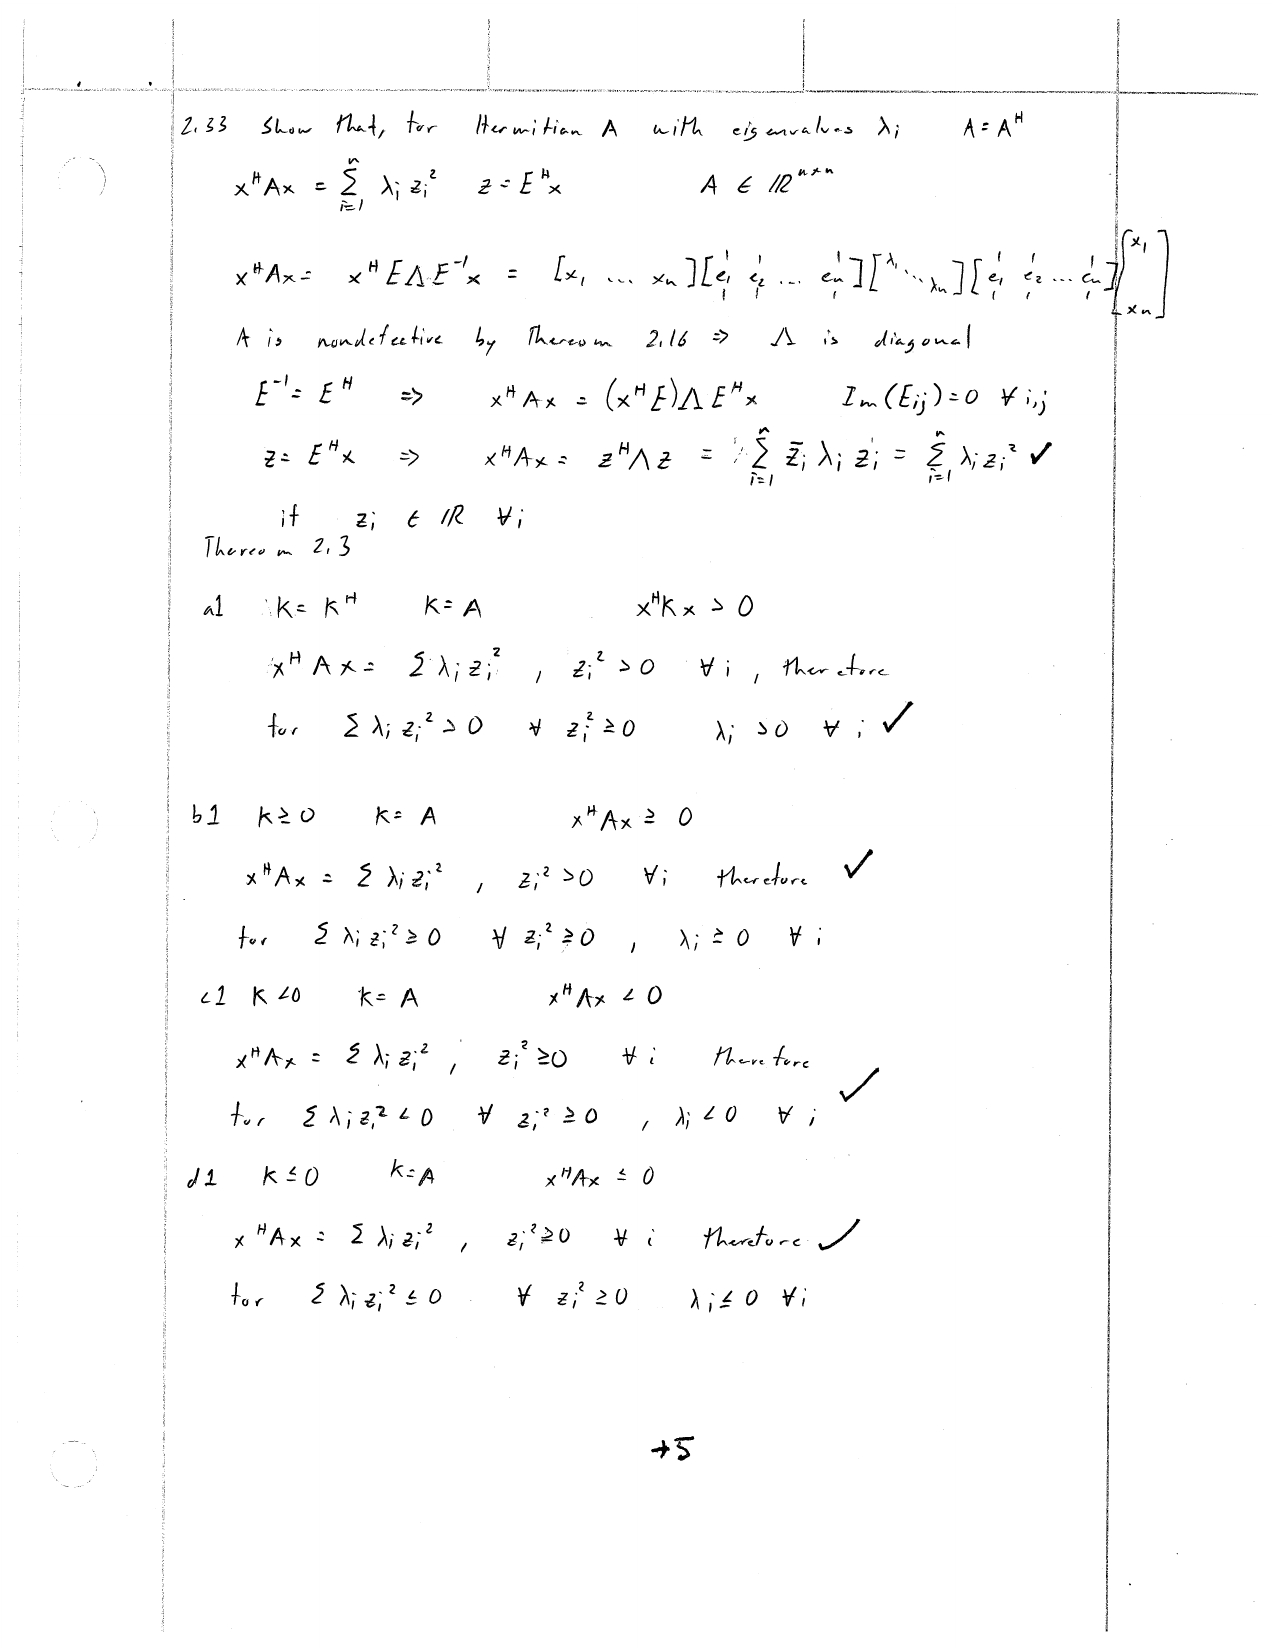 2.33 Show that, for Hermitian A with eigenvalues λi A = A^H
x^H Ax = Σ_{i=1}^{n} λi zi² z = E^H x A ∈ ℝ^{n×n}
x^H Ax = x^H E Λ E^{-1} x = [x1 ... xn] [e1 e2 ... en] [λ1 ⋱ λn] [e1 e2 ... en] [x1 ⋮ xn]
A is nondefective by Thereom 2.16 ⇒ Λ is diagonal
E^{-1} = E^H ⇒ x^H Ax = (x^H E) Λ E^H x Im(Eij) = 0 ∀ i,j
z = E^H x ⇒ x^H Ax = z^H Λ z = Σ_{i=1}^{n} z̄i λi zi = Σ_{i=1}^{n} λi zi² ✓
if zi ∈ ℝ ∀ i
Thereom 2.3
a1 K = K^H K = A x^H K x > 0
x^H A x = Σ λi zi² , zi² > 0 ∀ i , therefore
for Σ λi zi² > 0 ∀ zi² ≥ 0 λi > 0 ∀ i ✓
b1 K ≥ 0 K = A x^H Ax ≥ 0
x^H Ax = Σ λi zi² , zi² > 0 ∀i therefore ✓
for Σ λi zi² ≥ 0 ∀ zi² ≥ 0 , λi ≥ 0 ∀ i
c1 K < 0 K = A x^H Ax < 0
x^H Ax = Σ λi zi² , zi² ≥ 0 ∀ i therefore
for Σ λi zi² < 0 ∀ zi² ≥ 0 , λi < 0 ∀ i ✓
d1 K ≤ 0 K = A x^H Ax ≤ 0
x^H Ax = Σ λi zi² , zi² ≥ 0 ∀ i therefore ✓
for Σ λi zi² ≤ 0 ∀ zi² ≥ 0 λi ≤ 0 ∀i
+5